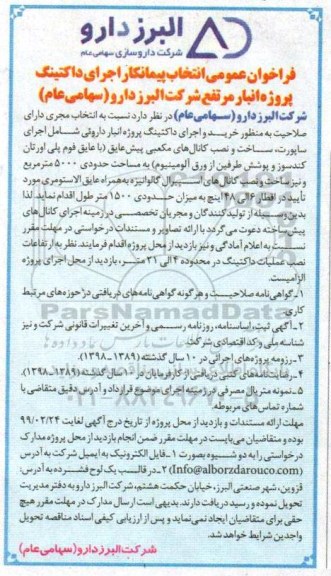 البرز دارو
شرکت داروسازی سهامی عام
فراخوان عمومی انتخاب پیمانکار اجرای داکتینگ
پروژه انبار مرتفع شرکت البرز دارو (سهامی عام)
شرکت البرز دارو (سهامی عام) در نظر دارد نسبت به انتخاب مجری دارای
صلاحیت به منظور خرید و اجرای داکتینگ پروژه انبار داروئی شامل اجرای
ساپورت، ساخت و نصب کانال‌های مکعبی پیش‌عایق (با عایق فوم پلی اورتان
کندسوز و پوشش طرفین از ورق آلومینیوم) به مساحت حدودی ۵۰۰۰ مترمربع
و نیز ساخت و نصب کانال‌های اسپیرال گالوانیزه به همراه عایق الاستومری مورد
تأیید در اقطار ۶ الی ۴۸ اینچ به میزان حدودی ۱۵۰۰ متر طول اقدام نماید. لذا
بدین وسیله از تولیدکنندگان و مجریان تخصصی در زمینه اجرای کانال‌های
پیش‌ساخته دعوت می‌گردد با ارائه تصاویر و مستندات درخواستی در مهلت مقرر
نسبت به اعلام آمادگی و نیز بازدید از محل پروژه اقدام فرمایند. نظر به ارتفاعات
نصب عملیات داکتینگ در محدوده ۴ الی ۲۱ متر، بازدید از محل اجرای پروژه
الزامیست.
۱-گواهی‌نامه صلاحیت و هرگونه گواهی‌نامه‌های دریافتی در حوزه‌های مرتبط
کاری.
۲-آگهی ثبت، اساسنامه، روزنامه رسمی و آخرین تغییرات قانونی شرکت و نیز
شناسه ملی و کد اقتصادی شرکت.
۳-رزومه پروژه‌های اجرائی در ۱۰ سال گذشته (۱۳۸۹-۱۳۹۸).
۴-رضایت‌نامه‌های کتبی دریافتی از کارفرمایان در ۱۰ سال گذشته (۱۳۸۹-۱۳۹۸).
۵-نمونه متریال مصرفی در زمینه اجرای موضوع قرارداد و آدرس دقیق متقاضی با
شماره تماس‌های مربوطه.
مهلت ارائه مستندات و بازدید از محل پروژه از تاریخ درج آگهی لغایت ۹۹/۰۲/۲۴
بوده و متقاضیان می‌بایست در مهلت مقرر ضمن انجام بازدید از محل پروژه مدارک
درخواستی را به دو شیوه بصورت ۱-فایل الکترونیک به ایمیل شرکت به آدرس
(Info@alborzdarouco.com) ۲-در قالب یک لوح فشرده به آدرس:
قزوین، شهر صنعتی البرز، خیابان حکمت هشتم، شرکت البرز دارو به دفتر مدیریت
تحویل نموده و رسید دریافت دارند. بدیهی است ارسال مدارک در مهلت مقرر هیچ
حقی برای متقاضیان ایجاد نمی‌نماید و پس از ارزیابی کیفی اسناد مناقصه تحویل
واجدین شرایط خواهد شد.
شرکت البرز دارو (سهامی عام)
ParsNamadData